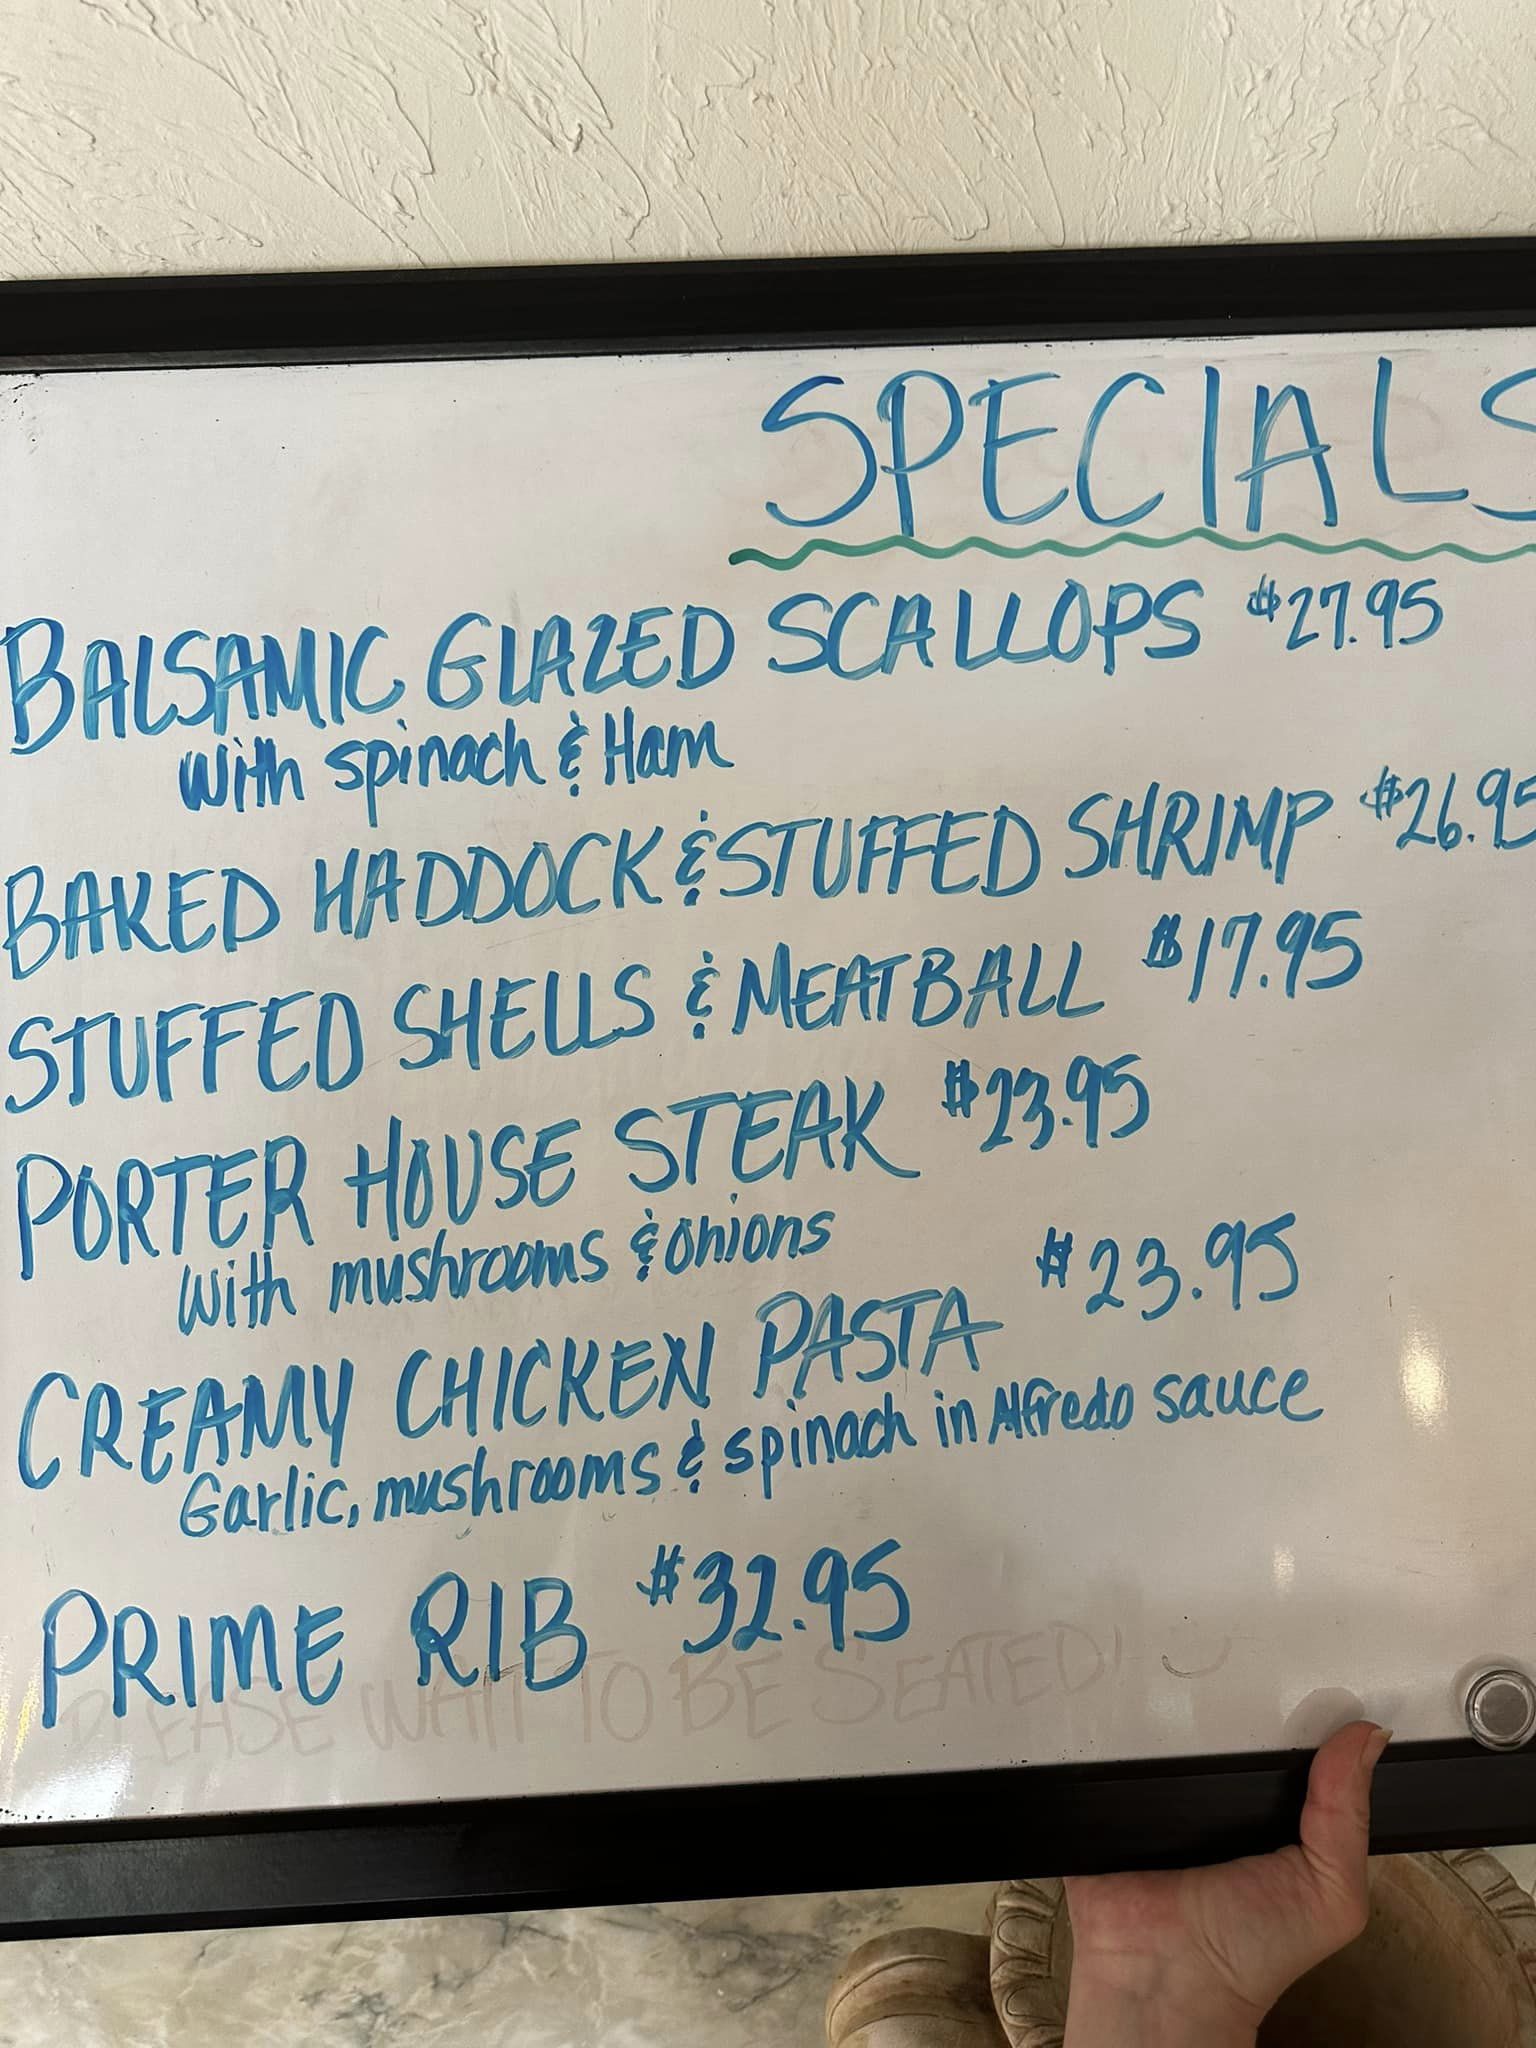 SPECIALS
BALSAMIC GLAZED SCALLOPS $27.95
with spinach & Ham
BAKED HADDOCK & STUFFED SHRIMP $26.95
STUFFED SHELLS & MEATBALL $17.95
PORTER HOUSE STEAK $23.95
with mushrooms & onions
CREAMY CHICKEN PASTA $23.95
Garlic, mushrooms & spinach in Alfredo sauce
PRIME RIB $32.95
PLEASE WAIT TO BE SEATED!